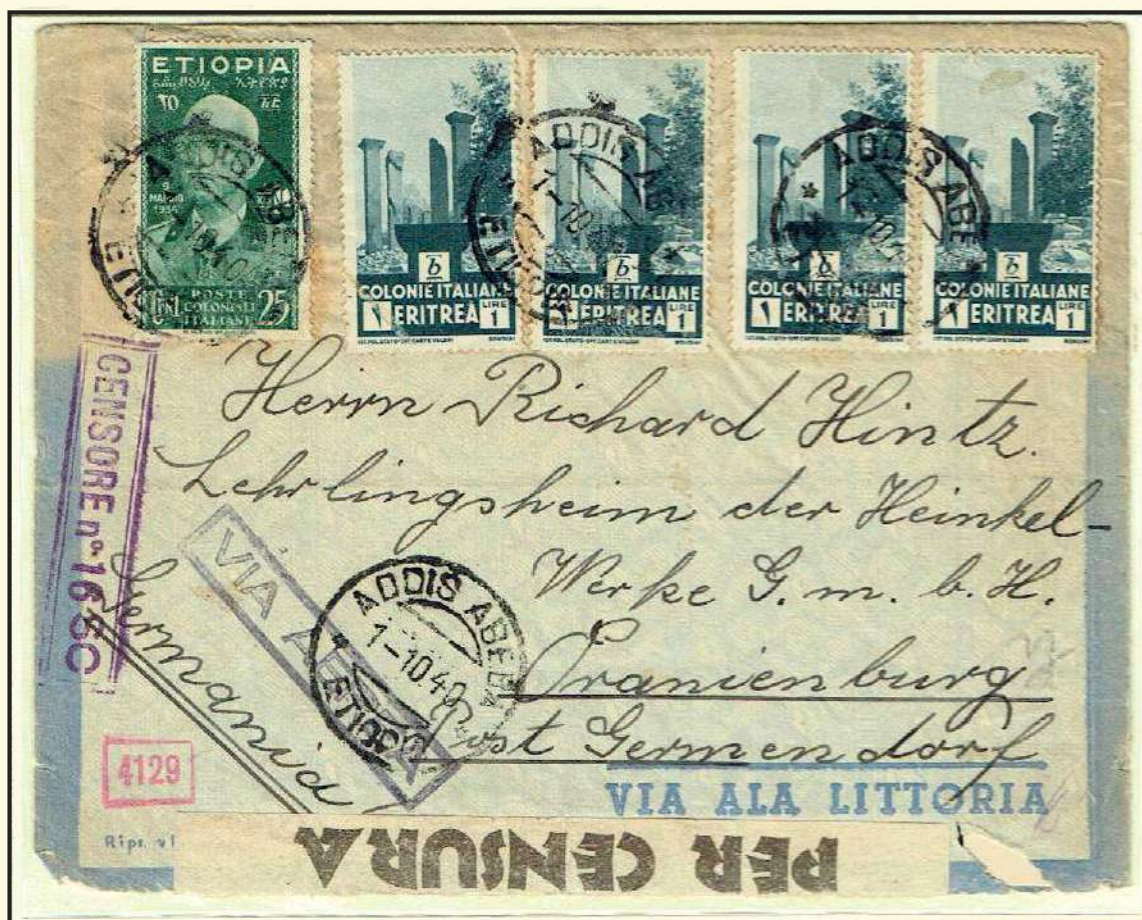 ETIOPIA
9
MAGGIO
1936
POSTE
COLONIALI
ITALIANE
25
COLONIE ITALIANE
1 ERITREA LIRE 1
COLONIE ITALIANE
ERITREA LIRE 1
COLONIE ITALIANE
1 ERITREA LIRE 1
COLONIE ITALIANE
1 ERITREA LIRE 1
ADDIS ABE
ADDIS ABE
ADDIS ABE
CENSORE nº 165C
Herrn Richard Hintz.
Lehrlingsheim der Heinkel-
Werke G. m. b. H.
Oranienburg
Post Germendorf
Germania
VIA
ADDIS ABEBA
1-10.40
ETIOPIA
4129
VIA ALA LITTORIA
Ripr. vi
PER CENSURA